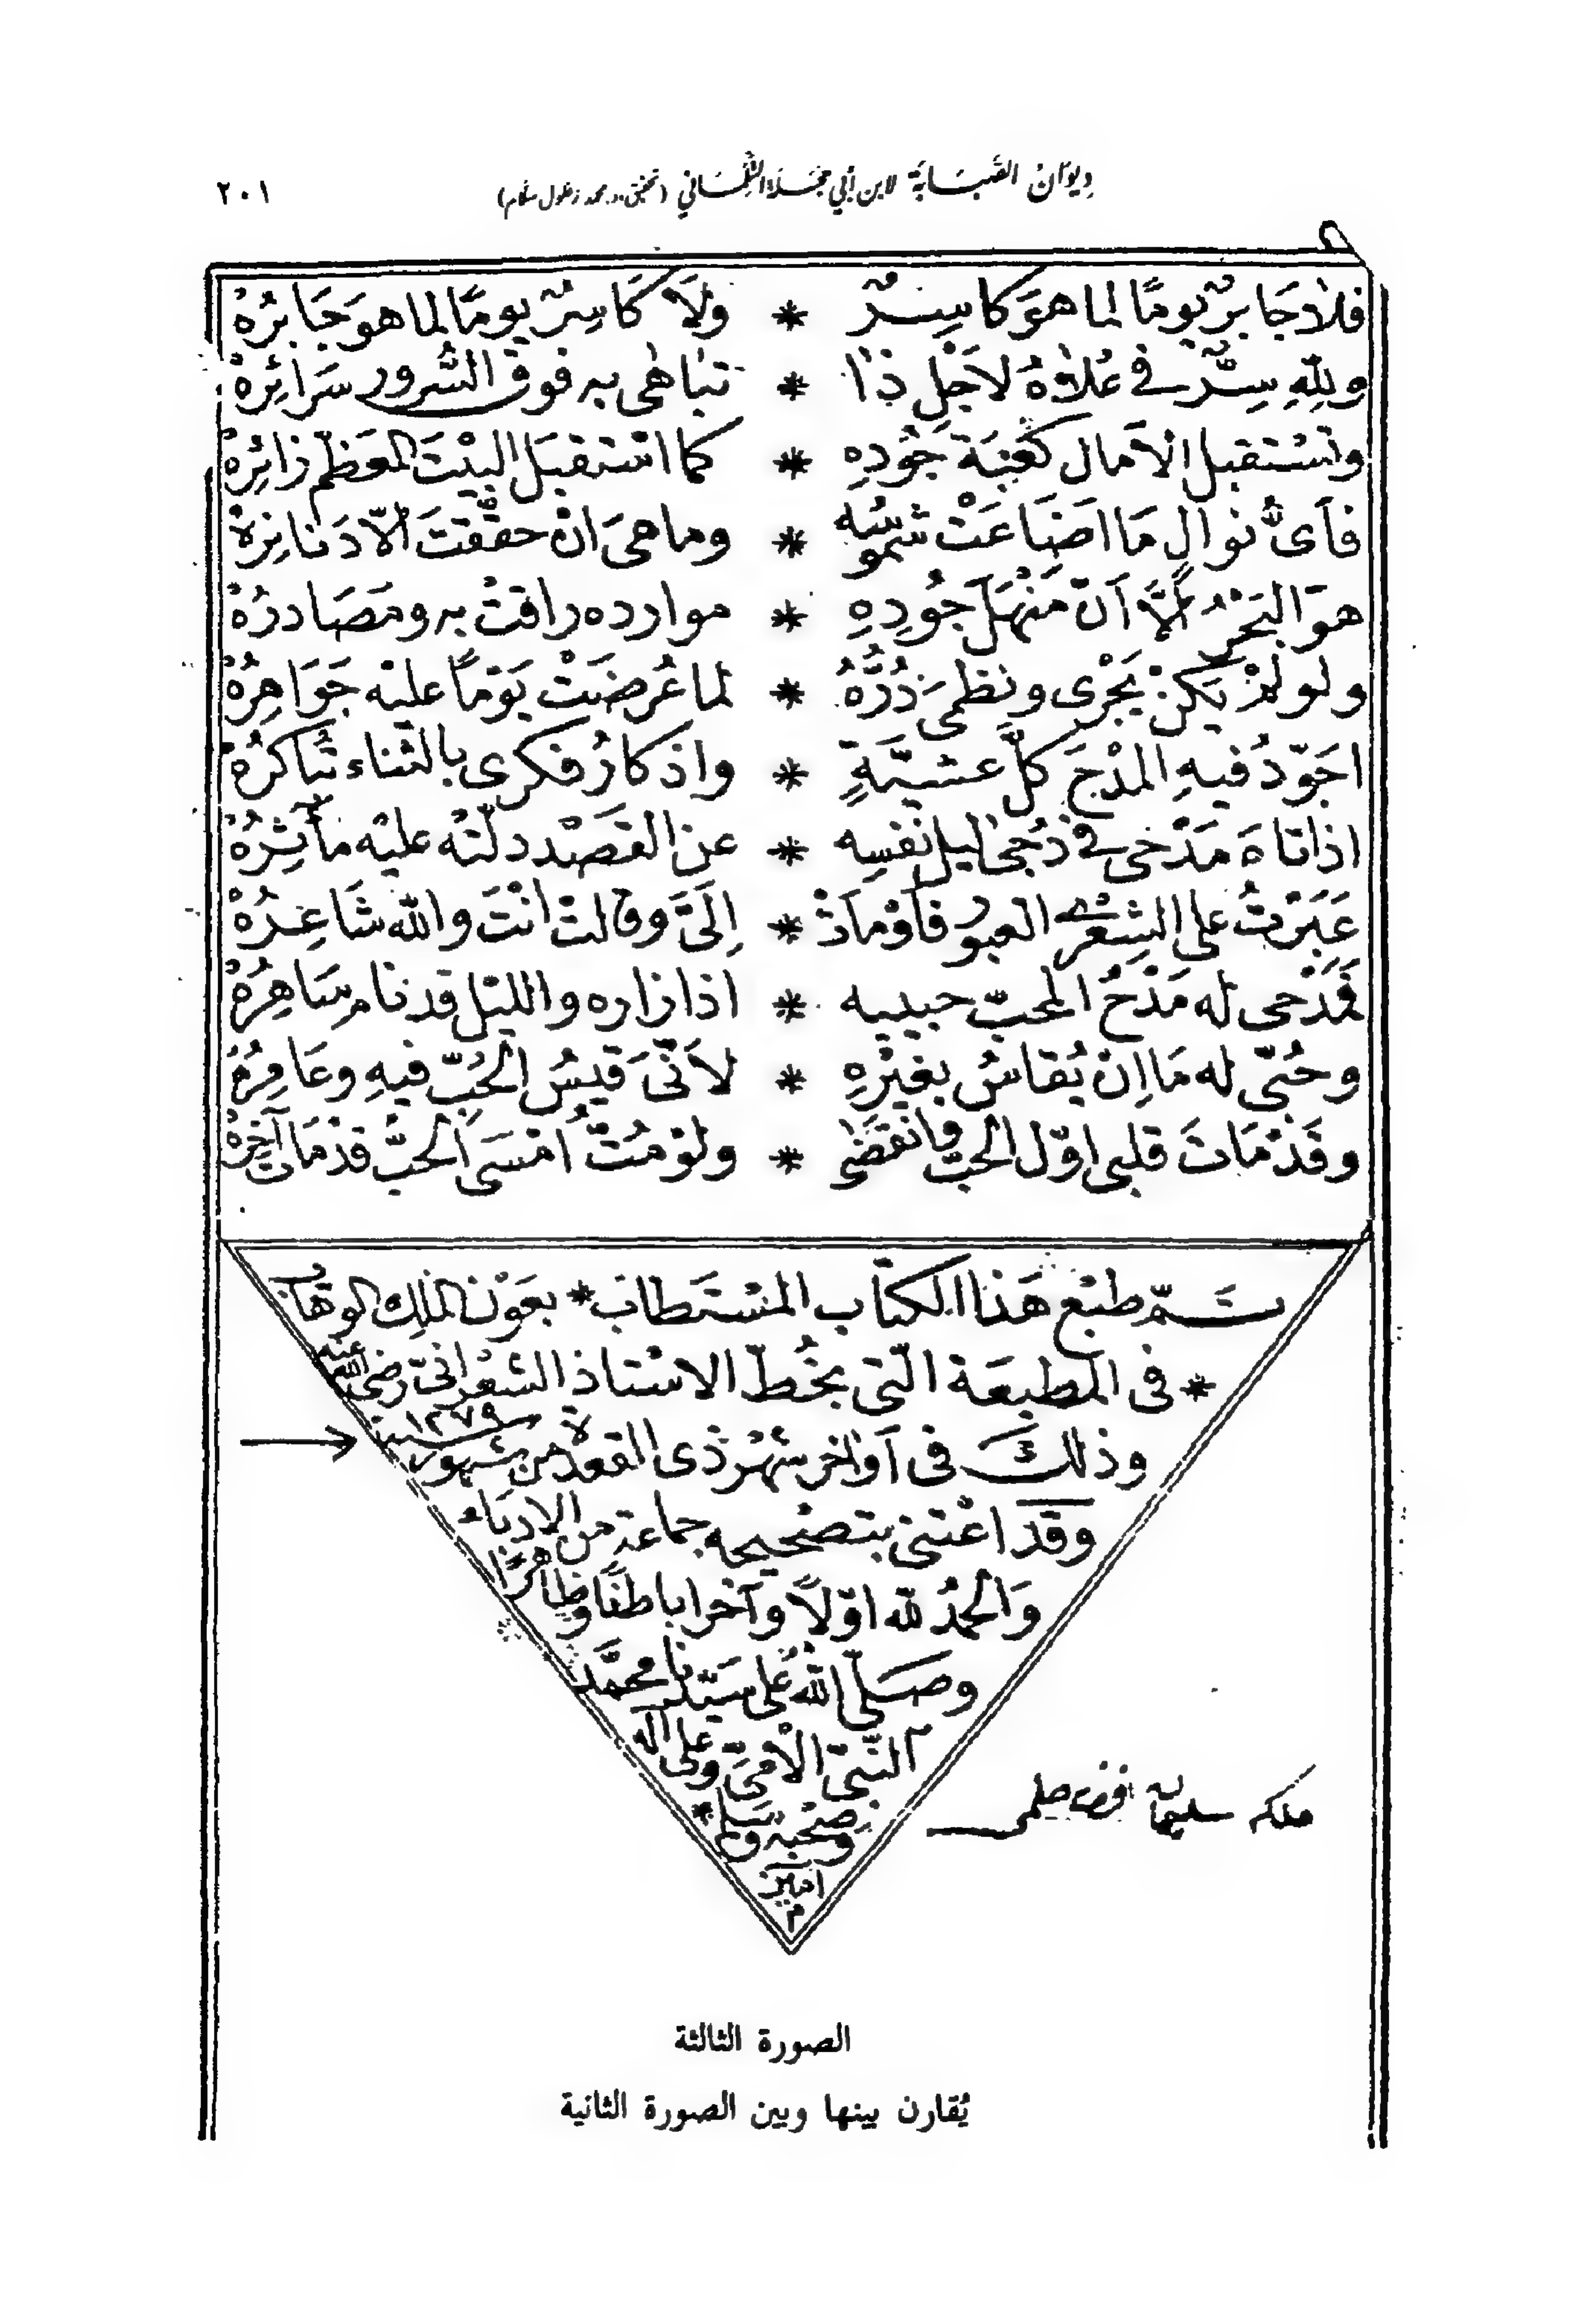 ديوان الصبابة لابن أبي حجلة التلمساني (تحقيق د. محمد زغلول سلام) ٢٠١
فلا جَابرٌ يومًا لما هوَ كاسِرٌ * ولَا كَاسِرٌ يومًا لما هو جَابرُهْ
ولِلّهِ سِرٌّ في عُلاهُ لاَجْلِ ذا * تباهى به فوق السُّرور سَرَائِرُهْ
وتسْتقبل الآمال كعْبَة جُودِهِ * كما استقبَل البيْتَ المعَظّم زائِرُهْ
فاَىُّ نوالٍ مَا اضَاعَتْ شموسُه * وما هىَ انْ حققْتَ الّا دَنانِرهْ
هوَ البَحْرُ الَّا اَنّ مَنْهَلَ جُودِهِ * موارده راقتْ به ومَصَادرُهْ
ولو لمْ يَكنْ بَحْرى ونظمىَ دُرُّهُ * لما عُرضَتْ يَوْمًا عليْه جَوَاهِرُهْ
اجَوّدُ فيهِ المدْحَ كلَّ عشيَّةٍ * واذكارُ فكرى بالثناء تُباكرُهْ
اذا تاهَ مَدْحى في دُجى ليل نفسِه * عن القصْد دلّتْه عليْه مآثِرُهْ
عَبَرْتُ على الشِعْرى العبور فاَوْمأتْ * اِلَىَّ وقالتْ انْتَ والله شَاعِرُهْ
فمَدْحى له مَدْحُ المحبّ حبيبه * اذا زاره والليْل قد نام سَاهِرُهْ
وحُبّى له مَا اِنْ يُقاسُ بغيْرِهِ * لاَنّىَ قيسُ الحُبّ فيهِ وعَامِرُهْ
وقَدْ مَاتَ قلبى اوّل الحبّ وانقضَى * ولوْ مُتُّ امْسَى الحبُّ قدْ مَات آخِرُهْ
تـمّ طبْع هَذا الكتاب المسْتَطاب * بعَوْن الملِك الوهّاب
* فى المطبعَة الّتى بخُطّ الاسْتاذ الشعْرانىّ رضى الله عنه
وذلكَ فى اَواخر شهْر ذى القعدة من شهور سنة ١٢٧٩
وقَد اعْتنى بتصْحيحه جماعة من الادبَاء
وَالحمدُ لله اوّلًا وآخرا باطنًا وظاهرًا
وصَلّى الله على سَيّدنا محمَّد
النّبىّ الْامّىّ وعلى اله
وصحْبه وسَلم *
امين
م
ملكه سليمان افندى حلمى
الصورة الثالثة
يُقارن بينها وبين الصورة الثانية